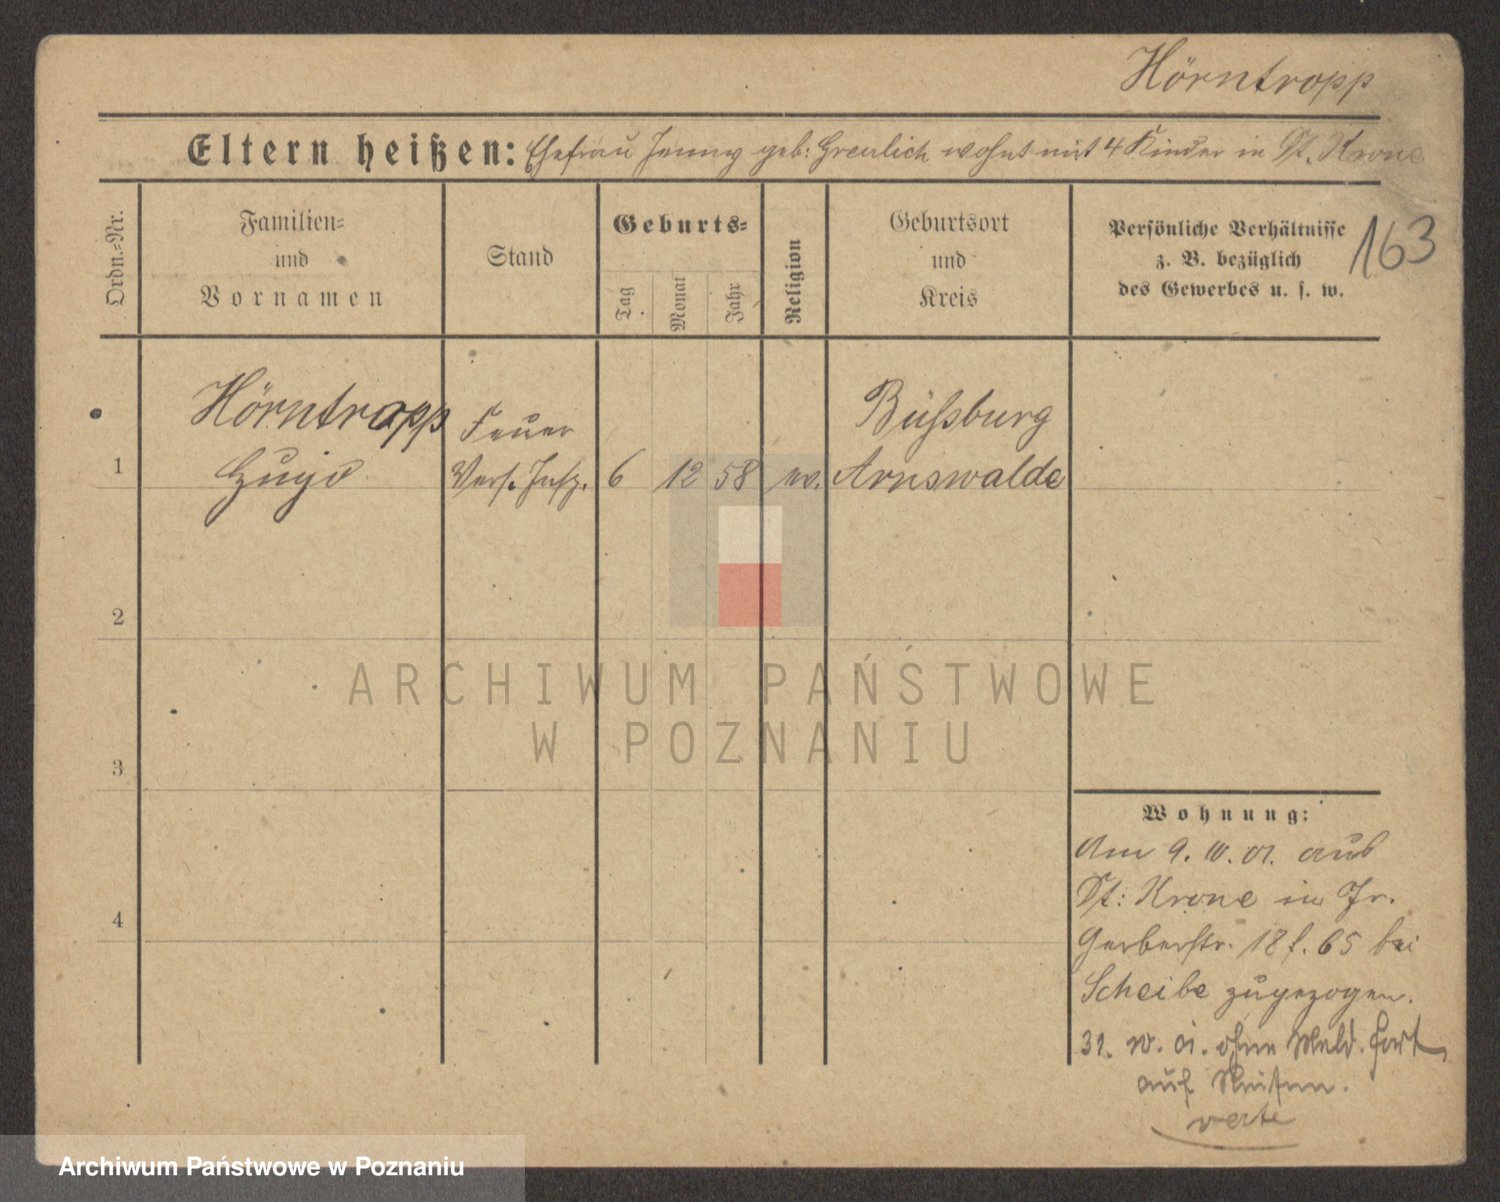 Hörntropp
Eltern heißen: Ehefrau Jenny geb: Greulich wohnt mit 4 Kinder in Dt. Krone
Ordn.-Nr.
Familien-
und
Vornamen
Stand
Geburts-
Tag
Monat
Jahr
Religion
Geburtsort
und
Kreis
Persönliche Verhältnisse
z. B. bezüglich
des Gewerbes u. s. w.
163
Hörntropp
Feuer
Büssburg
1
Hugo
Vers. Insp.
6
12
58
ev.
Arnswalde
2
3
4
Wohnung:
Am 9. 10. 01. aus
Dt: Krone in Gr.
Gerberstr. 18 f. 65 bei
Scheibe zugezogen.
31. 10. 01. ohne Meld. fort
auf Reisen.
verte
ARCHIWUM PAŃSTWOWE
W POZNANIU
Archiwum Państwowe w Poznaniu